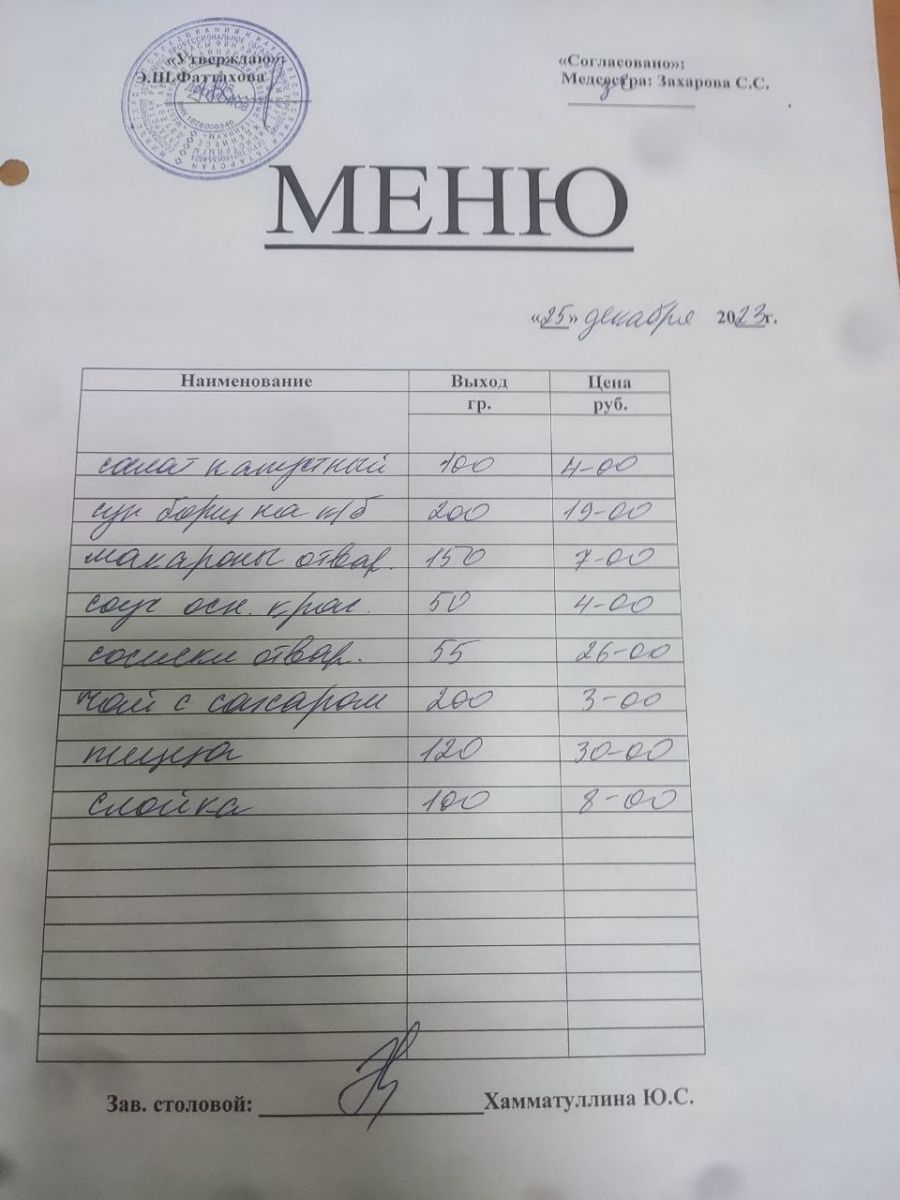 «Утверждаю»:
Э.Ш.Фаттахова
«Согласовано»:
Медсестра: Захарова С.С.
МЕНЮ
«25» декабря 2023г.
Наименование Выход Цена
гр. руб.
салат капустный 100 4-00
суп борщ на к/б 200 19-00
макароны отвар. 150 7-00
соус осн. крас. 50 4-00
сосиски отвар. 55 26-00
чай с сахаром 200 3-00
пицца 120 30-00
слойка 100 8-00
Зав. столовой: Хамматуллина Ю.С.